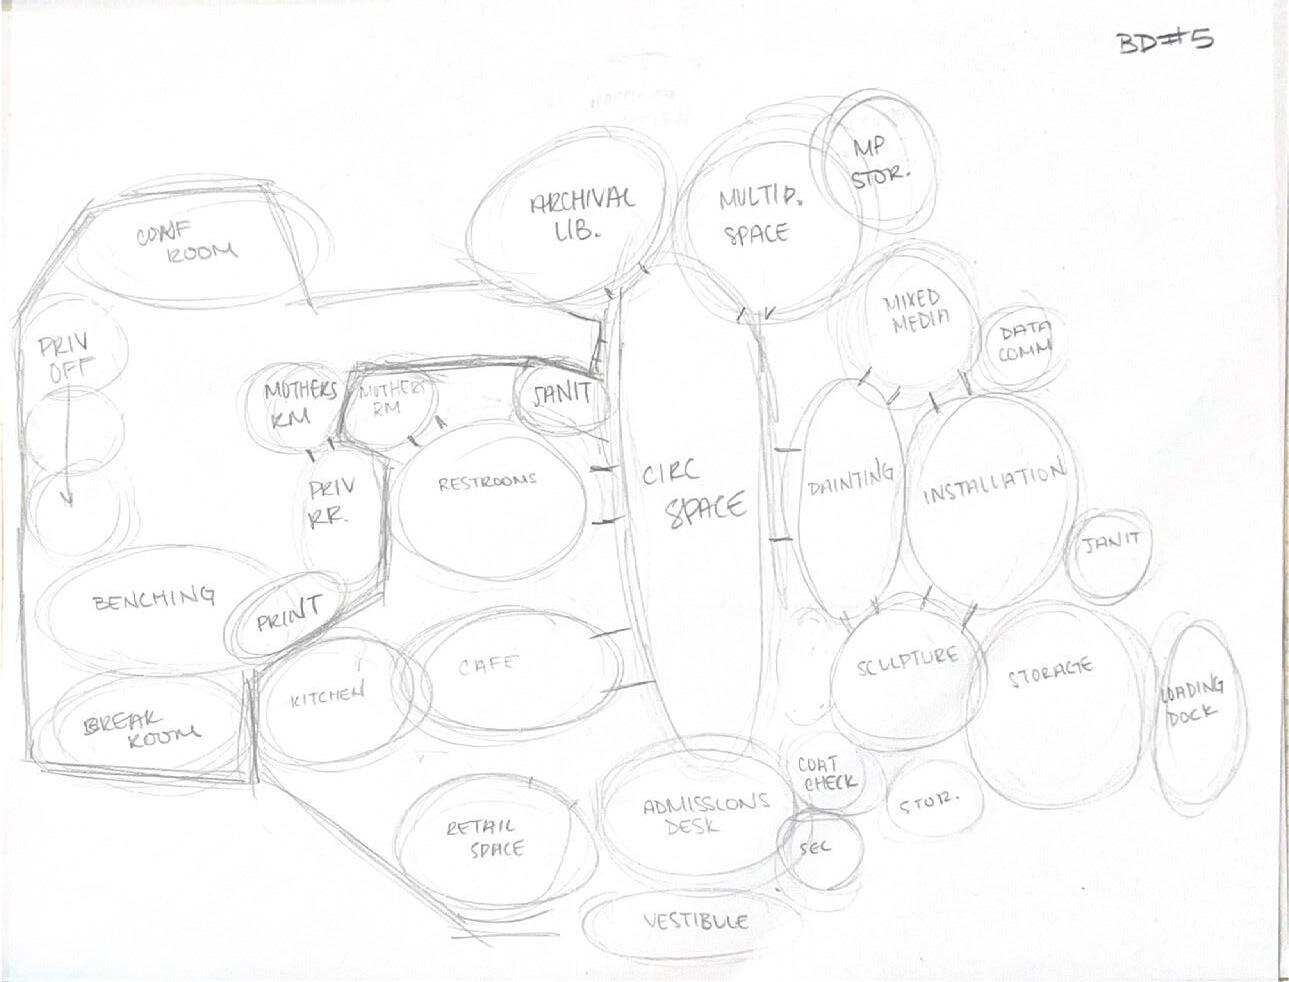 BD#5
MP
STOR.
ARCHIVAL
LIB.
MULTIP.
SPACE
CONF
ROOM
MIXED
MEDIA
DATA
COMM
PRIV
OFF
MOTHERS
RM
MOTHERS
RM
JANIT
PRIV
RR.
RESTROOMS
CIRC
SPACE
PAINTING
INSTALLATION
JANIT
BENCHING
PRINT
CAFE
KITCHEN
BREAK
ROOM
SCULPTURE
STORAGE
LOADING
DOCK
COAT
CHECK
STOR.
RETAIL
SPACE
ADMISSIONS
DESK
SEC
VESTIBULE